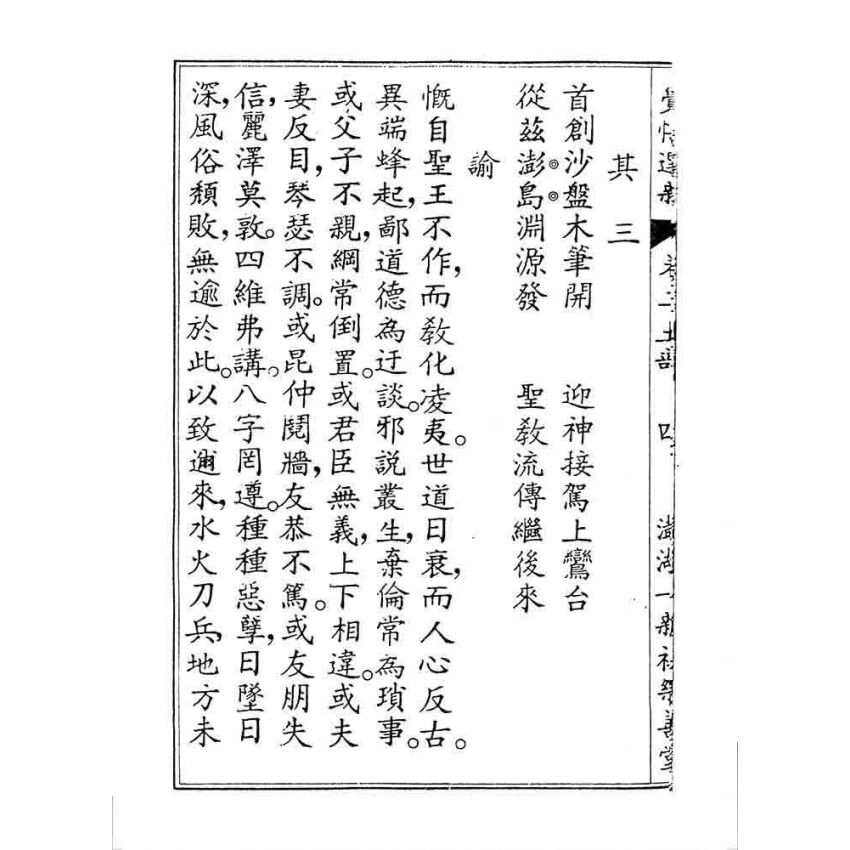 其三
首創沙盤木筆開 迎神接駕上鸞台
從茲澎島淵源發 聖教流傳繼後來
諭
慨自聖王不作，而教化凌夷。世道日衰，而人心反古。
異端蜂起，鄙道德為迂談。邪説叢生，棄倫常為瑣事。
或父子不親，綱常倒置。或君臣無義，上下相違。或夫
妻反目，琴瑟不調。或昆仲鬩牆，友恭不篤。或友朋失
信，麗澤莫敦。四維弗講。八字罔遵。種種惡孽，日墜日
深，風俗頹敗，無逾於此。以致邇來，水火刀兵，地方未